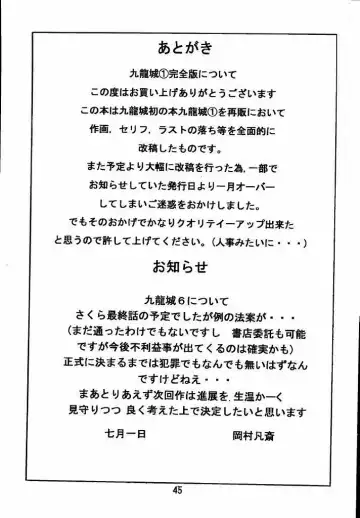 あとがき
九龍城①完全版について
この度はお買い上げありがとうございます
この本は九龍城初の本九龍城①を再販において
作画，セリフ，ラストの落ち等を全面的に
改稿したものです。
また予定より大幅に改稿を行った為，一部で
お知らせしていた発行日より一月オーバー
してしまいご迷惑をおかけしました。
でもそのおかげでかなりクオリテイーアップ出来た
と思うので許して上げてください。（人事みたいに・・・）
お知らせ
九龍城６について
さくら最終話の予定でしたが例の法案が・・・
（まだ通ったわけでもないですし　書店委託も可能
ですが今後不利益事が出てくるのは確実かも）
正式に決まるまでは犯罪でもなんでも無いはずなん
ですけどねえ・・・
まあとりあえず次回作は進展を，生温かーく
見守りつつ 良く考えた上で決定したいと思います
七月一日　岡村凡斎
45